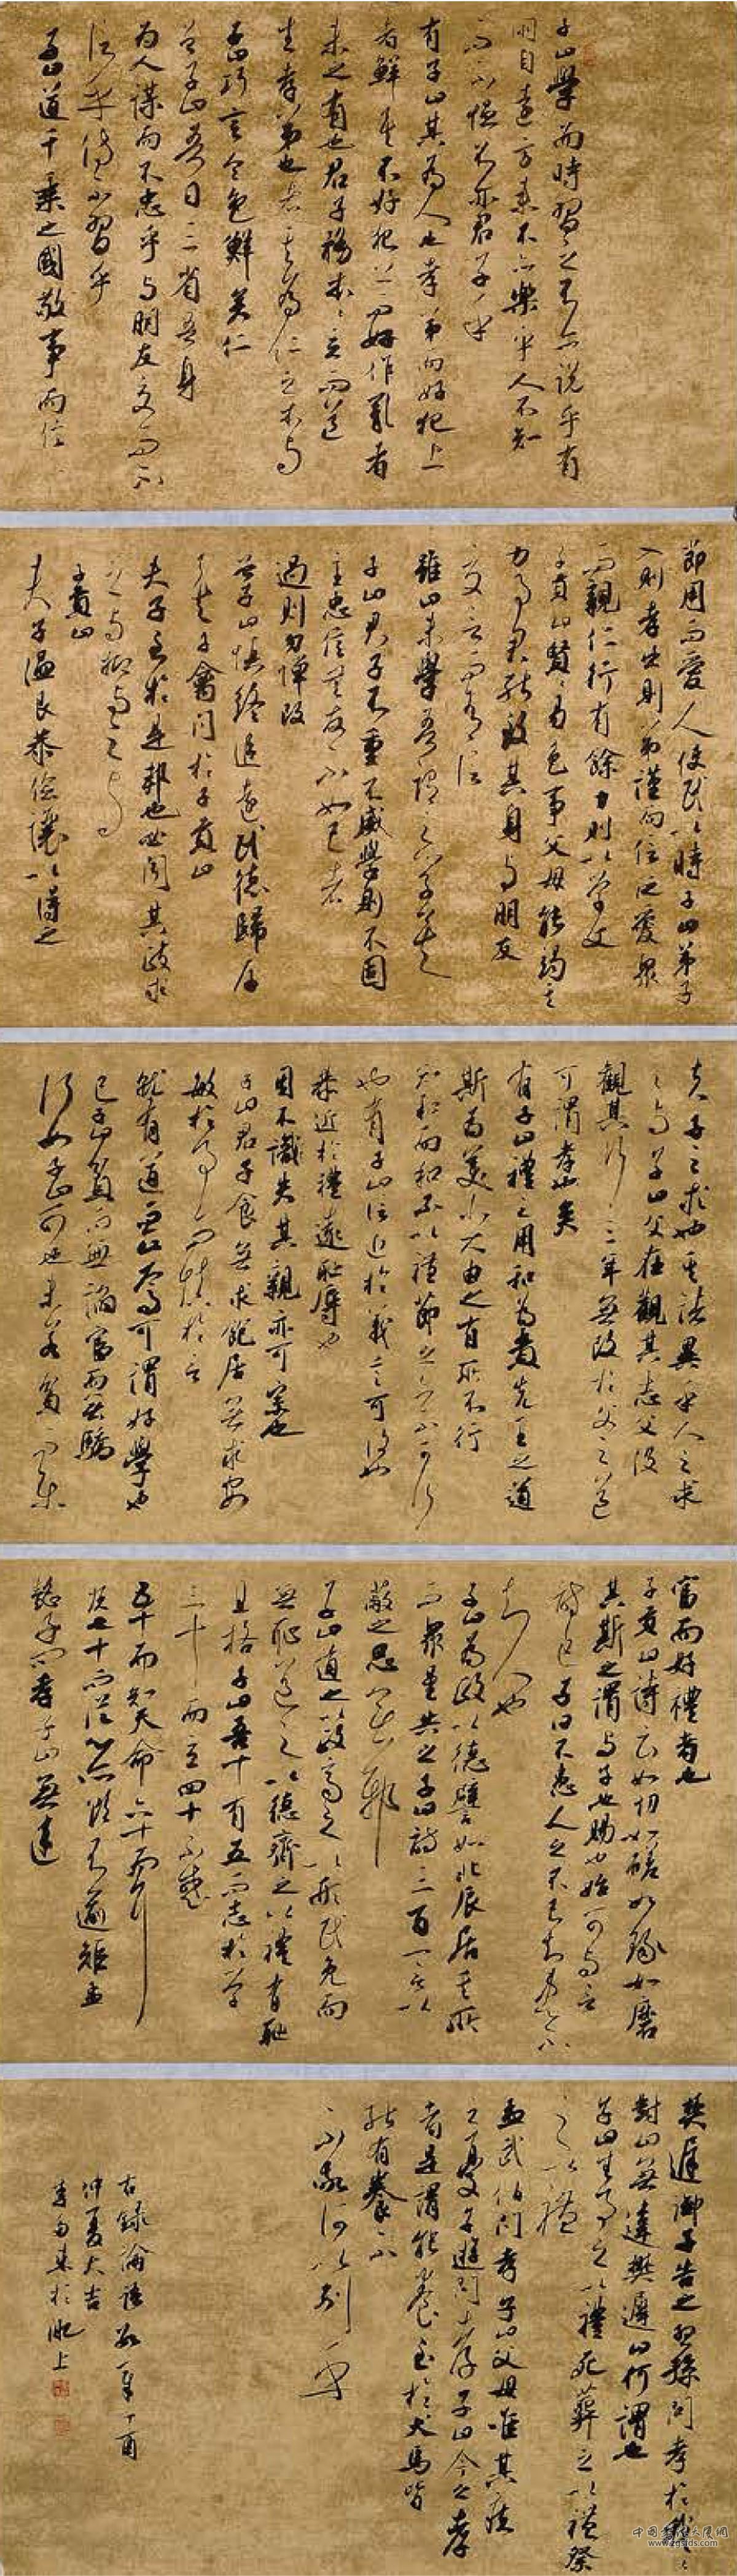 子曰學而時習之不亦說乎有
朋自遠方來不亦樂乎人不知
而不慍不亦君子乎
有子曰其為人也孝弟而好犯上
者鮮矣不好犯上而好作亂者
未之有也君子務本本立而道
生孝弟也者其為仁之本與
子曰巧言令色鮮矣仁
曾子曰吾日三省吾身
為人謀而不忠乎與朋友交而不
信乎傳不習乎
子曰道千乘之國敬事而信
節用而愛人使民以時子曰弟子
入則孝出則弟謹而信汎愛眾
而親仁行有餘力則以學文
子夏曰賢賢易色事父母能竭其
力事君能致其身與朋友
交言而有信
雖曰未學吾謂之學矣
子曰君子不重不威學則不固
主忠信無友不如己者
過則勿憚改
曾子曰慎終追遠民德歸厚
矣子禽問於子貢曰
夫子至於是邦也必聞其政求
之與抑與之與
子貢曰
夫子溫良恭儉讓以得之
夫子之求也其諸異乎人之求
之與子曰父在觀其志父沒
觀其行三年無改於父之道
可謂孝也矣
有子曰禮之用和為貴先王之道
斯為美小大由之有所不行
知和而和不以禮節之亦不可行
也有子曰信近於義言可復也
恭近於禮遠恥辱也
因不識失其親亦可宗也
子曰君子食無求飽居無求安
敏於事而慎於言
就有道而正焉可謂好學也
已子曰貧而無諂富而無驕
何如子曰可也未若貧而樂
富而好禮者也
子貢曰詩云如切如磋如琢如磨
其斯之謂與子曰賜也始可與言
詩已子曰不患人之不己知患不
知人也
子曰為政以德譬如北辰居其所
而眾星共之子曰詩三百一言以
蔽之思無邪
子曰道之以政齊之以刑民免而
無恥道之以德齊之以禮有恥
且格子曰吾十有五而志於學
三十而立四十不惑
五十而知天命六十而耳
順七十而從心所欲不逾矩孟
懿子問孝子曰無違
樊遲御子告之曰孟孫問孝於我我
對曰無違樊遲曰何謂也
子曰生事之以禮死葬之以禮祭
之以禮
孟武伯問孝子曰父母唯其疾
之憂子游問孝子曰今之孝
者是謂能養至於犬馬皆
能有養不
不敬何以別乎
右錄論語數章丁酉
仲夏大吉
李多來於肥上
中国书法大展网
www.zgsfds.com